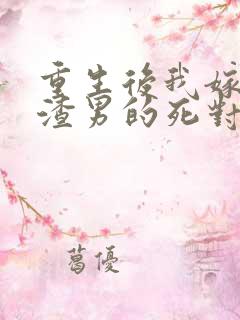 重生後我嫁
渣男的死對
葛優